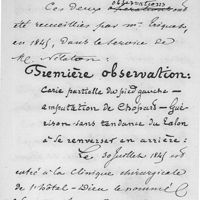 observations
Ces deux opérations ont
été recueillies par Mr Triquet,
en 1845, dans le service de
Mr Nélaton :
Première observation :
Carie partielle du pied gauche –
amputation de Chopart – Gué-
rison sans tendance du talon
à se renverser en arrière :
Le 30 Juillet 1845 est
entré à la Clinique chirurgicale
de l'hôtel-Dieu le nommé C